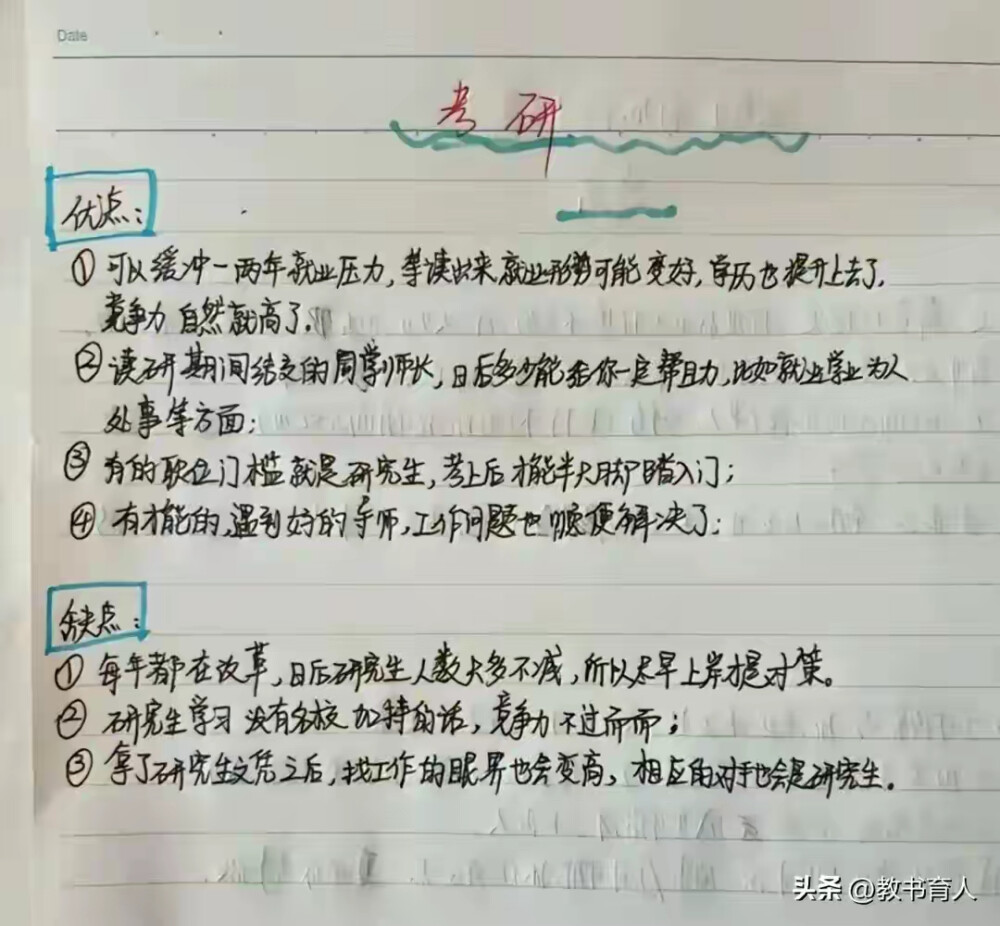 Date
考研
优点：
① 可以缓冲一两年就业压力，等读出来就业形势可能变好，学历也提升上去了，
竞争力自然就高了．
② 读研期间结交的同学师长，日后多少能给你一定帮助力，比如就业学业为人
处事等方面；
③ 有的职位门槛就是研究生，考上后才能半大脚踏入门；
④ 有才能的，遇到好的导师，工作问题也顺便解决了；
缺点：
① 每年都在改革，日后研究生人数大多不减，所以尽早上岸才是对策。
② 研究生学习没有名校加持的话，竞争力不过而而；
③ 拿了研究生文凭之后，找工作的眼界也会变高，相应的对手也会是研究生．
头条 @教书育人